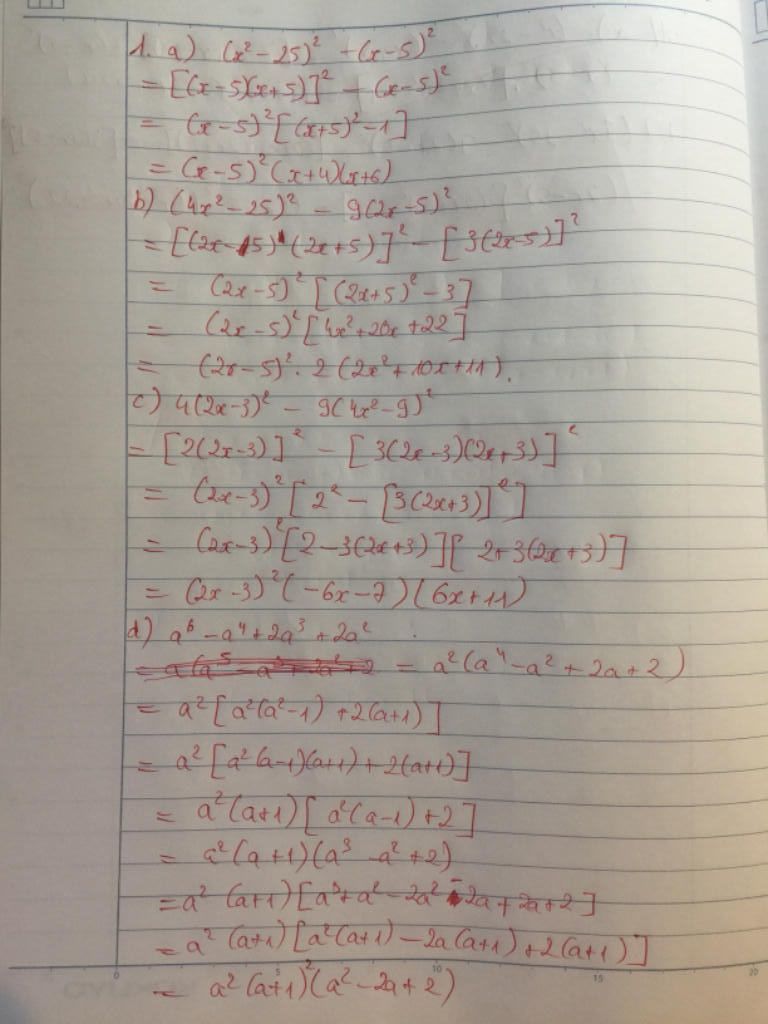 1. a) (x² - 25)² - (x - 5)²
= [(x - 5)(x + 5)]² - (x - 5)²
= (x - 5)² [(x + 5)² - 1]
= (x - 5)² (x + 4)(x + 6)
b) (4x² - 25)² - 9(2x - 5)²
= [(2x - 5) (2x + 5)]² - [3(2x - 5)]²
= (2x - 5)² [(2x + 5)² - 3]
= (2x - 5)² [4x² + 20x + 22]
= (2x - 5)² . 2 (2x² + 10x + 11).
c) 4(2x - 3)² - 9(4x² - 9)²
= [2(2x - 3)]² - [3(2x - 3)(2x + 3)]²
= (2x - 3)² [2² - [3(2x + 3)]²]
= (2x - 3)² [2 - 3(2x + 3)][2 + 3(2x + 3)]
= (2x - 3)² (-6x - 7)(6x + 11)
d) a⁶ - a⁴ + 2a³ + 2a²
= a² (a⁴ - a² + 2a + 2)
= a² [a² (a² - 1) + 2(a + 1)]
= a² [a² (a - 1)(a + 1) + 2(a + 1)]
= a² (a + 1) [a² (a - 1) + 2]
= a² (a + 1)(a³ - a² + 2)
= a² (a + 1) [a³ + a² - 2a² - 2a + 2a + 2]
= a² (a + 1) [a² (a + 1) - 2a (a + 1) + 2(a + 1)]
0 5 10 15 20
= a² (a + 1)² (a² - 2a + 2)